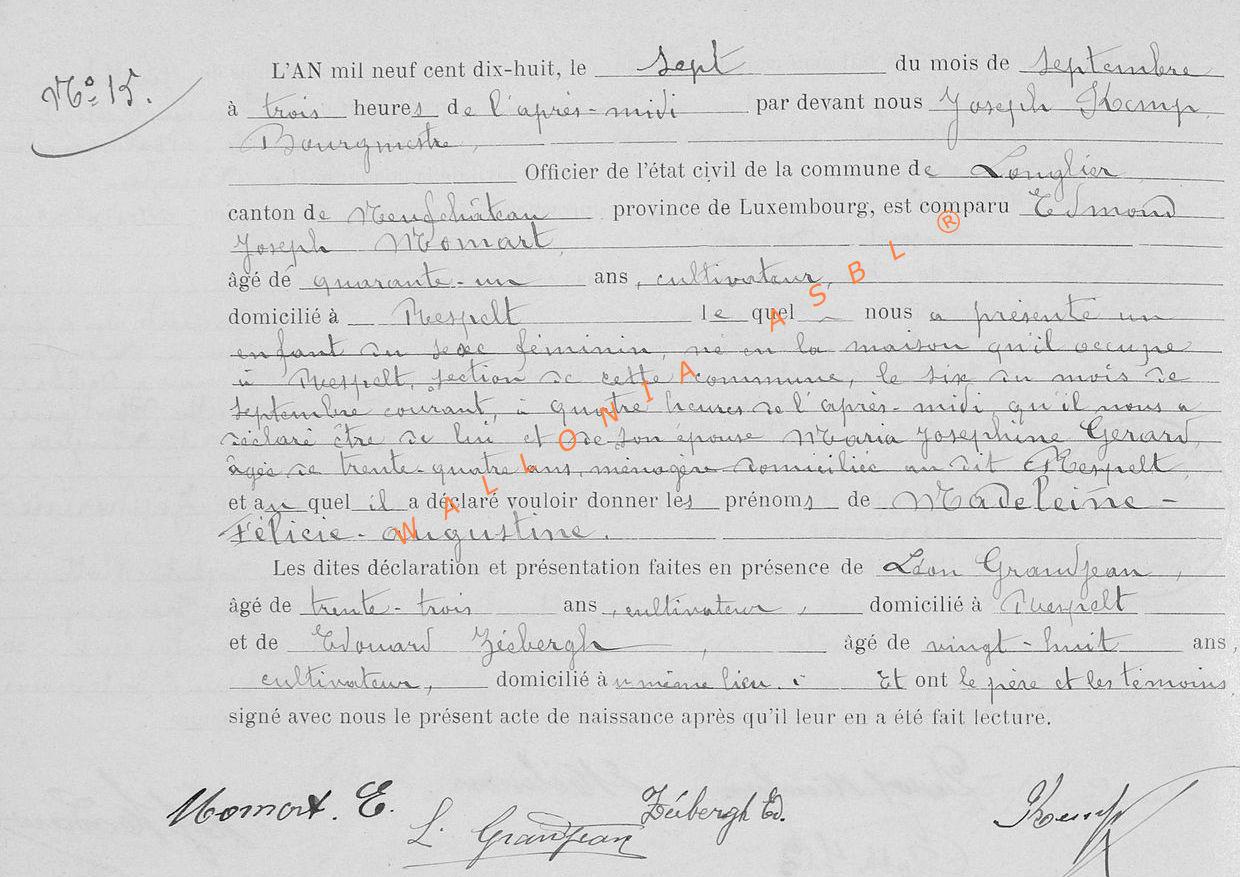 Nº 15.
L'AN mil neuf cent dix-huit, le sept du mois de septembre
à trois heures de l'après-midi par devant nous Joseph Kemp,
Bourgmestre,
Officier de l'état civil de la commune de Longlier
canton de Neufchâteau province de Luxembourg, est comparu Edmond
Joseph Momart
âgé de quarante-un ans, cultivateur,
domicilié à Respelt le quel nous a présenté un
enfant du sexe féminin, né en la maison qu'il occupe
à Respelt, section de cette commune, le six du mois de
septembre courant, à quatre heures de l'après-midi, qu'il nous a
déclaré être de lui et de son épouse Maria Josephine Gerard,
âgée de trente-quatre ans, ménagère domiciliée au dit Respelt
et au quel il a déclaré vouloir donner les prénoms de Madeleine-
Félicie-Augustine.
Les dites déclaration et présentation faites en présence de Léon Grandjean,
âgé de trente-trois ans, cultivateur, domicilié à Respelt
et de Edouard Zéebergh, âgé de vingt-huit ans,
cultivateur, domicilié au même lieu. Et ont le père et les témoins,
signé avec nous le présent acte de naissance après qu'il leur en a été fait lecture.
Momart. E. L. Grandjean Zéebergh Ed. Kemp
WALLONIA ASBL ®